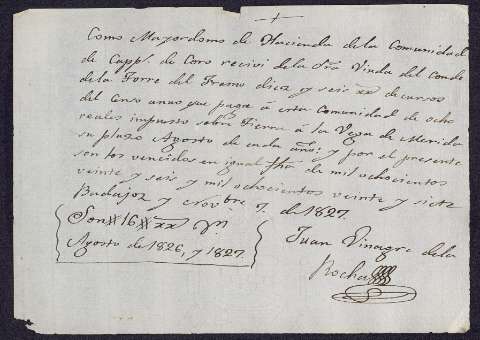 Como Mayordomo de Hacienda de la Comunidad
de Capps. de Coro recivi de la Sra. Viuda del Conde
de la Torre del Fresno diez y seis rr de cursos
del Censo anuo que paga á esta Comunidad de ocho
reales impuesto sobre Tierra á la Vega de Merida
su plazo Agosto de cada año; y por el presente
son los vencidos en igual fha de mil ochocientos
veinte y seis y mil ochocientos veinte y siete
Badajoz y Novbre 7. de 1827.
Son # 16 # rr
Agosto de 1826, y 1827.
Juan Vinagre de la
Rocha